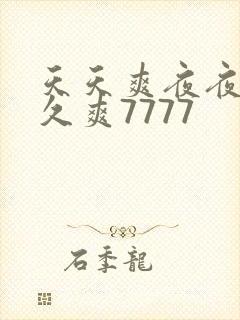 天天爽夜夜
久爽7777
石季龍